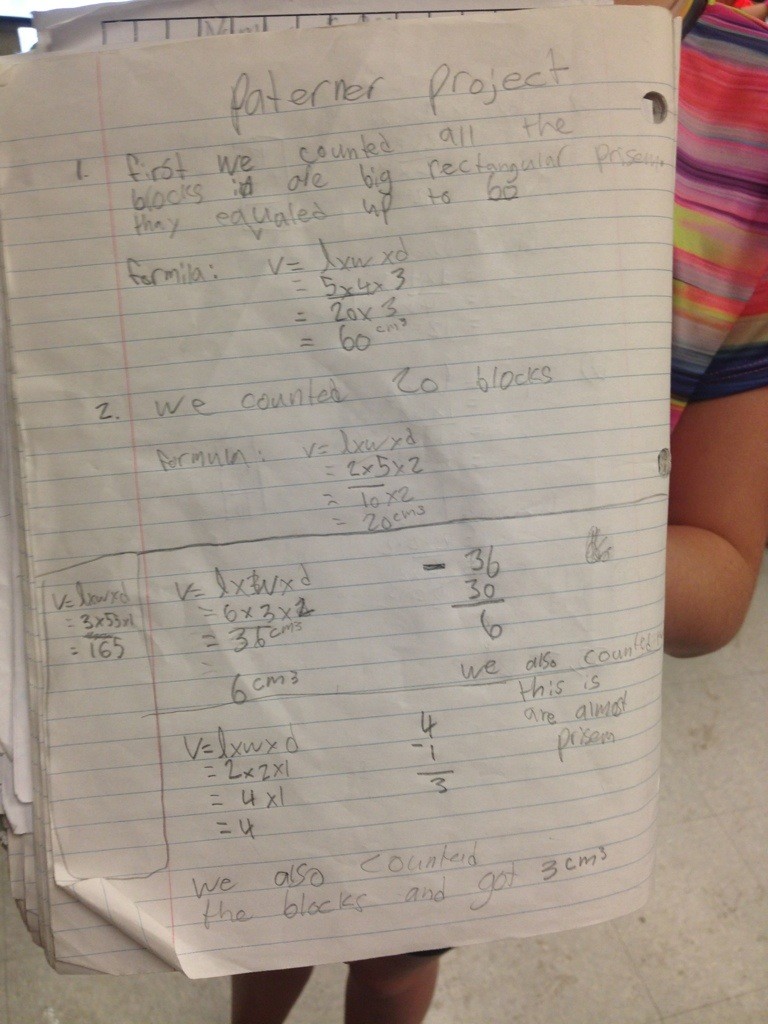 paterner project
1. first we counted all the
blocks in are big rectangular prisem.
thay equaled up to 60
formila: v= lxwxd
= 5x4x3
= 20x3
= 60 cm³
2. we counted 20 blocks
formula: v= lxwxd
= 2x5x2
= 10x2
= 20cm³
v= lxwxd
= 3x53x1
= 165
V= lxwxd
= 6x3x2
= 36cm³
6cm³
- 36
30
6
we also counted
this is
are almost
prisem
V=lxwxd
= 2x2x1
= 4x1
= 4
4
-1
3
we also counterd
the blocks and got 3cm³